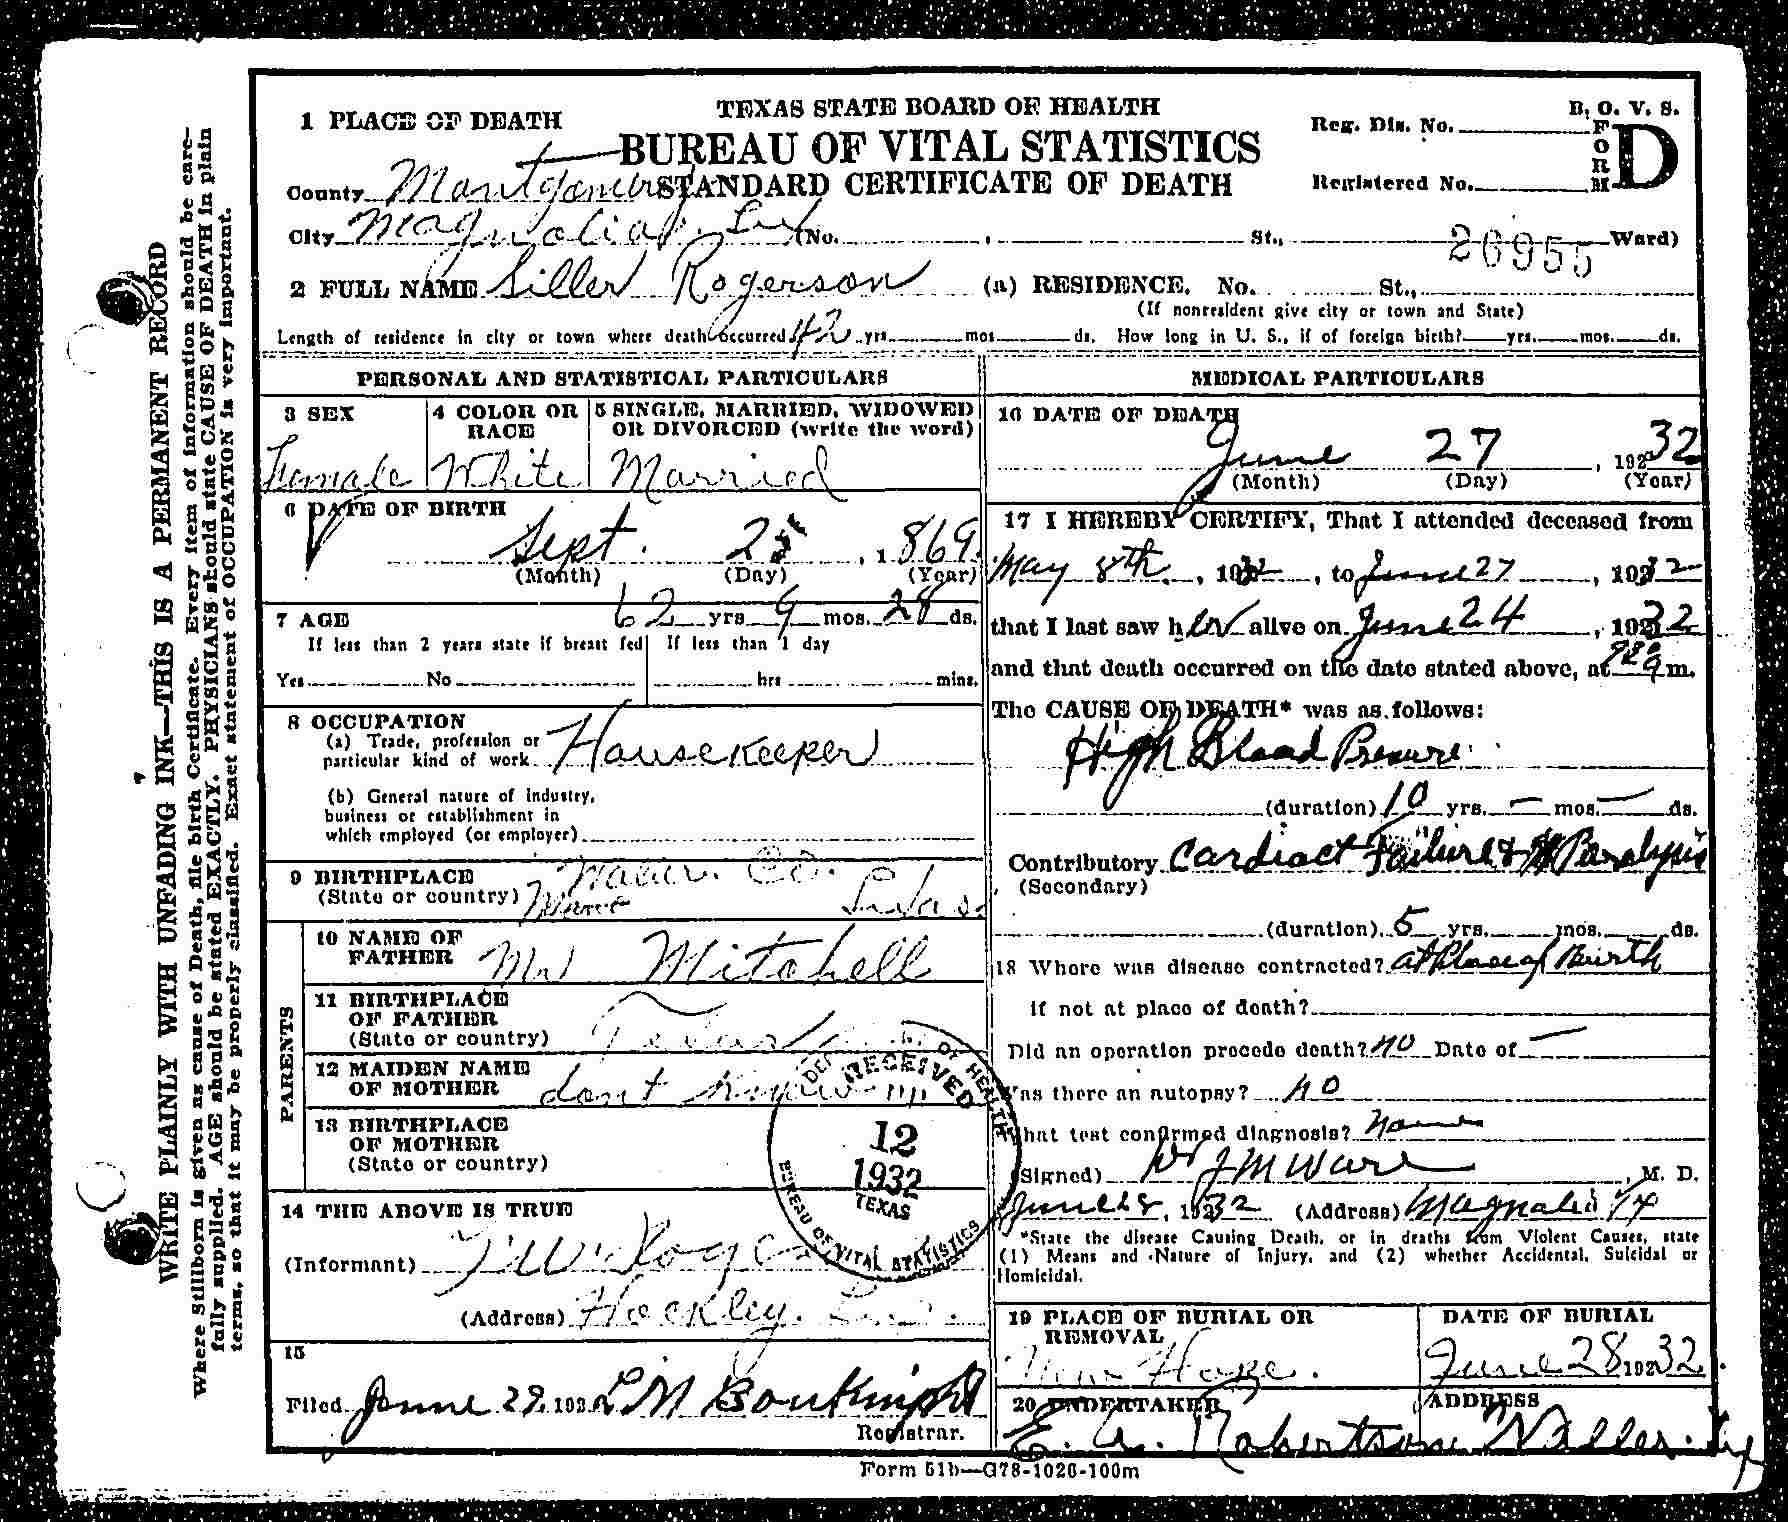 TEXAS STATE BOARD OF HEALTH
BUREAU OF VITAL STATISTICS
STANDARD CERTIFICATE OF DEATH
B. O. V. S.
FORM D
Reg. Dis. No.
Registered No.
1 PLACE OF DEATH
County Montgomery
City Magnolia, Tex (No. , St., Ward)
26955
2 FULL NAME Siller Rogerson (a) RESIDENCE. No. St.,
(If nonresident give city or town and State)
Length of residence in city or town where death occurred 42 yrs. mos. ds. How long in U. S., if of foreign birth? yrs. mos. ds.
PERSONAL AND STATISTICAL PARTICULARS
3 SEX
Female
4 COLOR OR RACE
White
5 SINGLE, MARRIED, WIDOWED OR DIVORCED (write the word)
Married
6 DATE OF BIRTH
Sept. 2 , 1869.
(Month) (Day) (Year)
7 AGE 62 yrs 9 mos. 28 ds.
If less than 2 years state if breast fed
If less than 1 day
Yes No
hrs mins.
8 OCCUPATION
(a) Trade, profession or
particular kind of work Housekeeper
(b) General nature of industry,
business or establishment in
which employed (or employer)
9 BIRTHPLACE
(State or country)
Co.
10 NAME OF FATHER Mr Mitchell
11 BIRTHPLACE OF FATHER
(State or country) Texas
12 MAIDEN NAME OF MOTHER dont know
13 BIRTHPLACE OF MOTHER
(State or country)
PARENTS
14 THE ABOVE IS TRUE
(Informant)
(Address) Hockley,
15
Filed June 29, 192 L M Boutknight
Registrar.
RECEIVED
12
1932
TEXAS
BUREAU OF VITAL STATISTICS
OF HEALTH
MEDICAL PARTICULARS
16 DATE OF DEATH
June 27 , 19232
(Month) (Day) (Year)
17 I HEREBY CERTIFY, That I attended deceased from
May 8th , 1932 , to June 27 , 1932
that I last saw her alive on June 24 , 1932
and that death occurred on the date stated above, at m.
The CAUSE OF DEATH* was as follows:
High Blood Presure
(duration) 10 yrs. – mos. – ds.
Contributory Cardiact Failure & Paralysis
(Secondary)
(duration) 5 yrs. mos. ds.
18 Where was disease contracted? at Place of Beurth
if not at place of death?
Did an operation precede death? no Date of –
Was there an autopsy? no
What test confirmed diagnosis? none
(Signed) Dr J M Ware, M. D.
June 28, 19232 (Address) Magnolia Tx
*State the disease Causing Death, or in deaths from Violent Causes, state
(1) Means and Nature of Injury, and (2) whether Accidental, Suicidal or
Homicidal.
19 PLACE OF BURIAL OR REMOVAL
New Hope.
DATE OF BURIAL
June 28 19232.
20 UNDERTAKER
E. A. Robertson
ADDRESS
Waller, Tex
Form 51b—G78-1026-100m
WRITE PLAINLY WITH UNFADING INK—THIS IS A PERMANENT RECORD
Where Stillborn is given as cause of Death, file birth Certificate. Every item of information should be care-
fully supplied. AGE should be stated EXACTLY. PHYSICIANS should state CAUSE OF DEATH in plain
terms, so that it may be properly classified. Exact statement of OCCUPATION is very important.